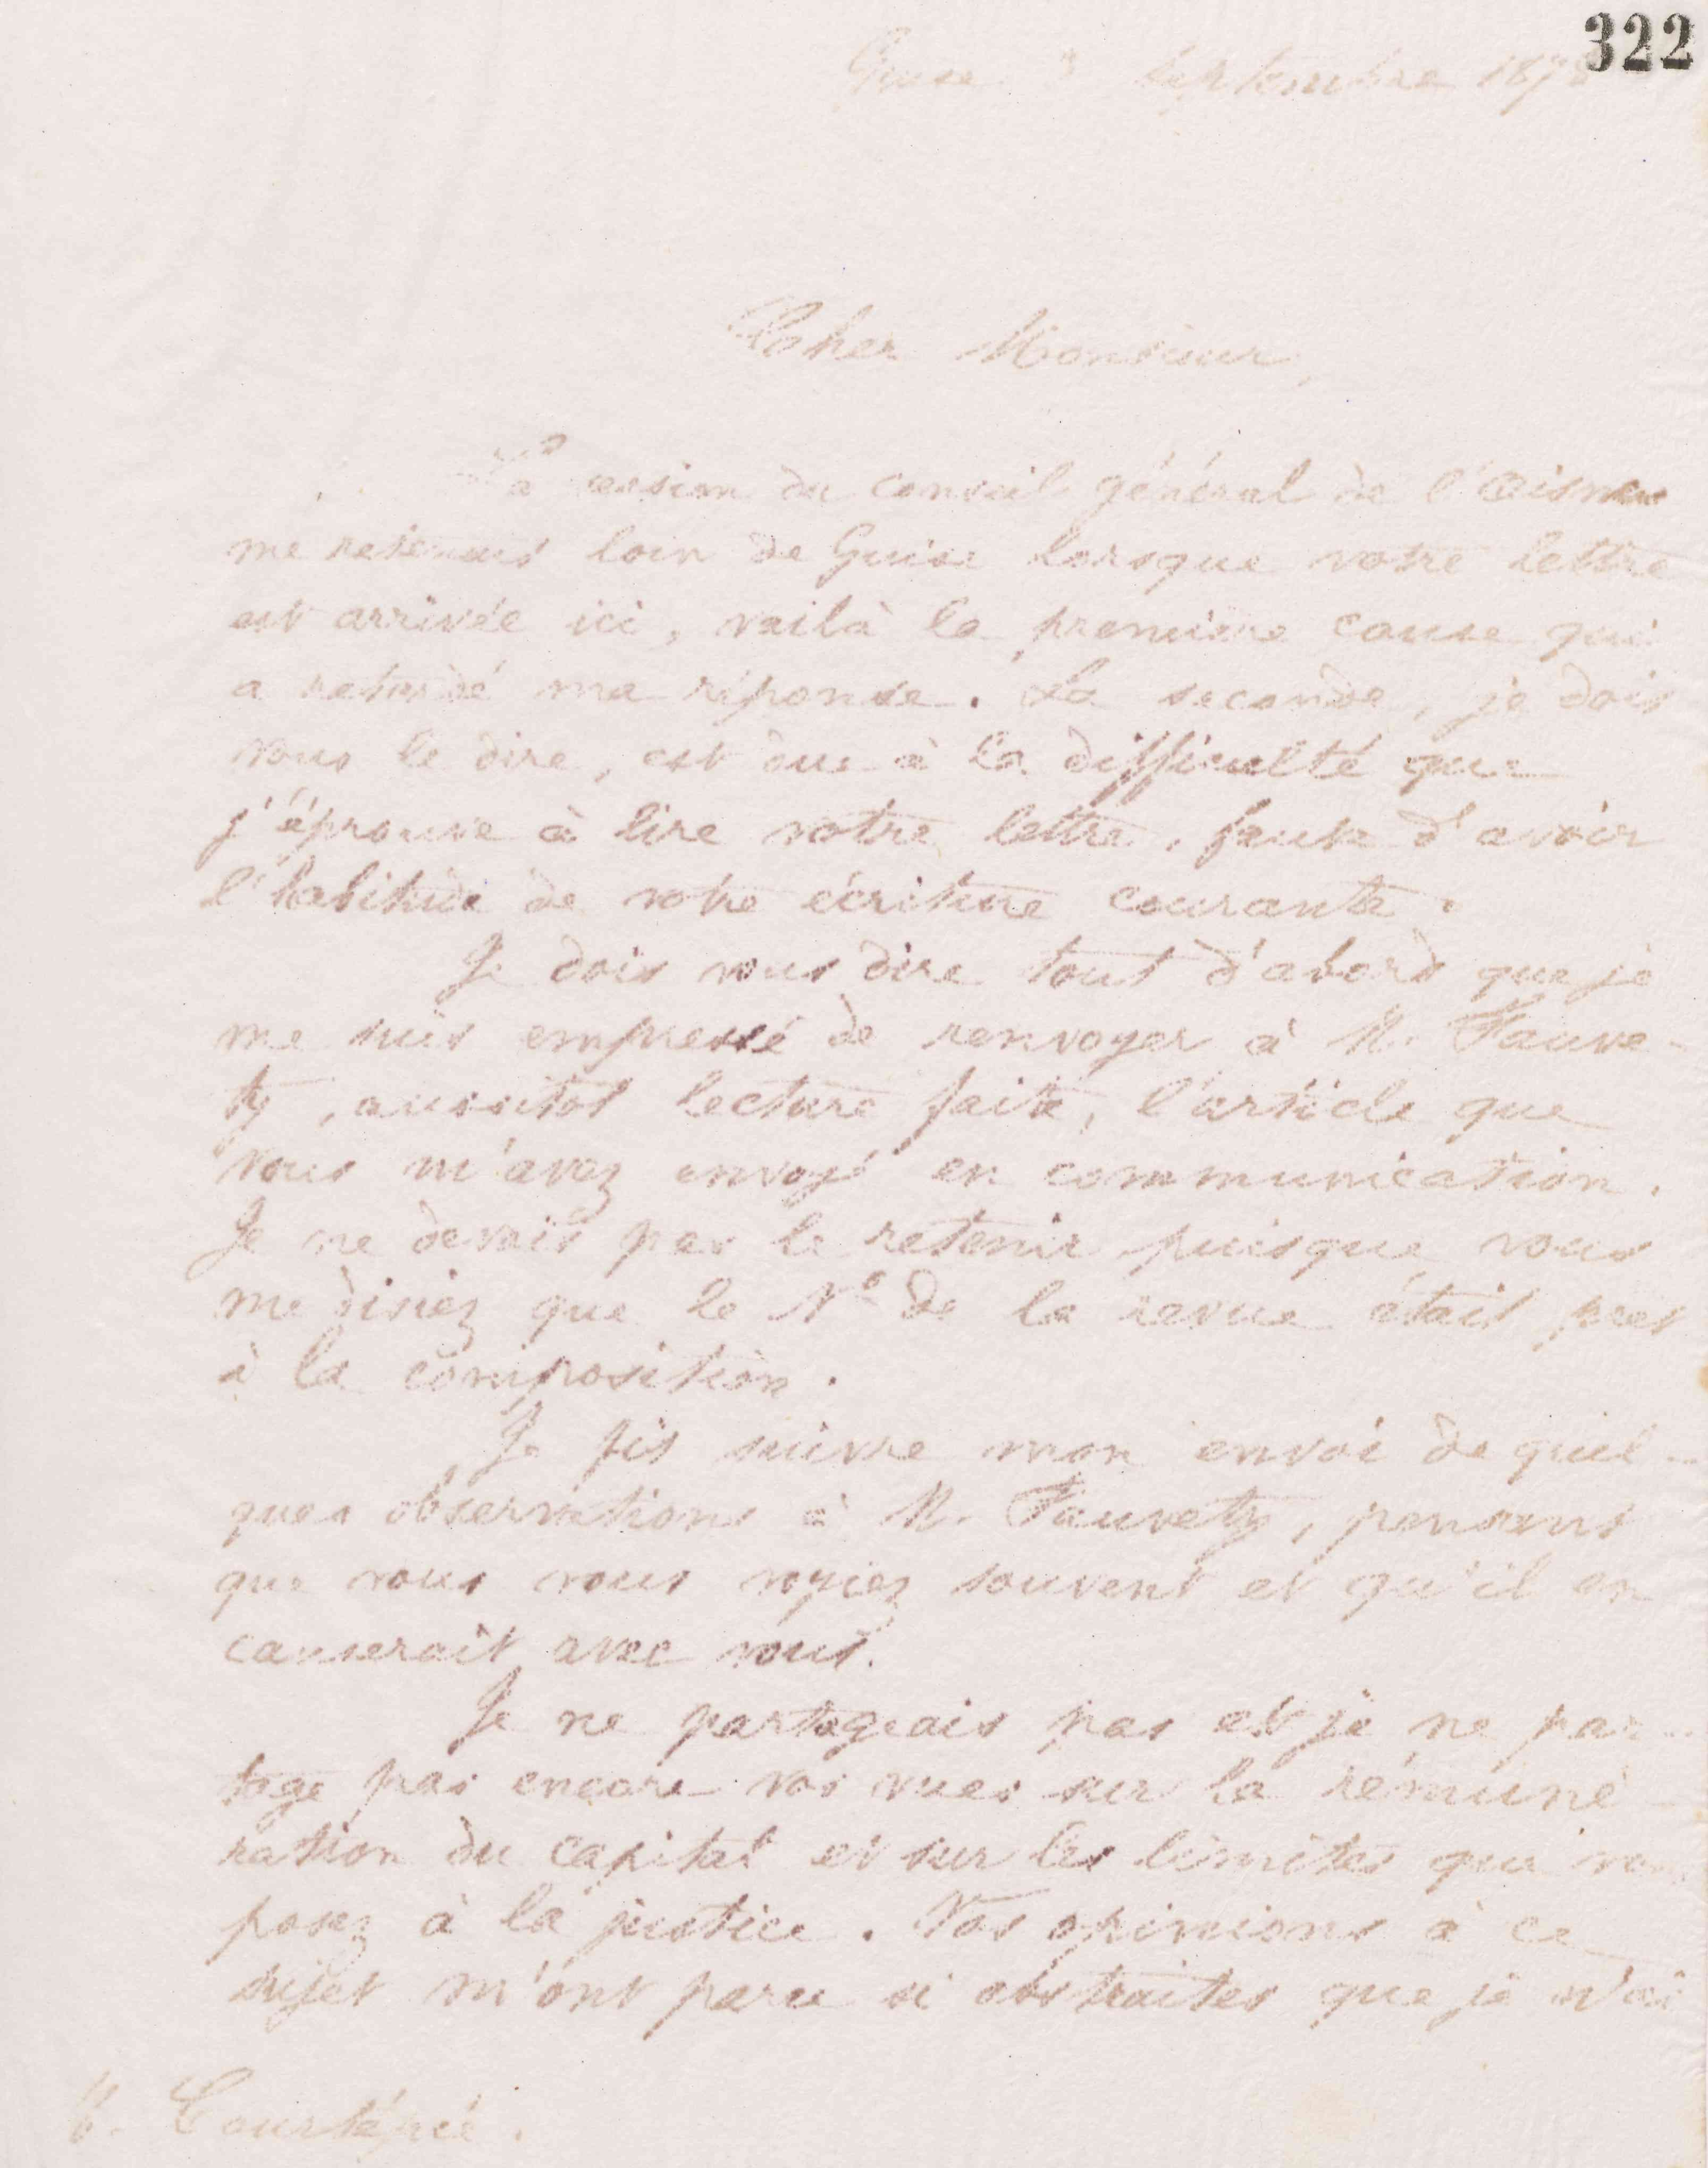 322
Guise 3 septembre 187
Cher Monsieur,
La session du conseil général de l'Aisne
me retenait loin de Guise lorsque votre lettre
est arrivée ici, voilà la première cause qui
a retardé ma réponse. La seconde, je dois
vous le dire, est due à la difficulté que
j'éprouve à lire votre lettre, faute d'avoir
l'habitude de votre écriture courante.
Je dois vous dire tout d'abord que je
me suis empressé de renvoyer à M. Fauve-
ty, aussitôt lecture faite, l'article que
vous m'avez envoyé en communication.
Je ne devais pas le retenir puisque vous
me disiez que le N° de la revue était prêt
à la composition.
Je fis suivre mon envoi de quel-
ques observations à M. Fauvety, pensant
que vous vous voyiez souvent et qu'il en
causerait avec vous.
Je ne partageais pas et je ne par-
tage pas encore vos vues sur la rémuné-
ration du capital et sur les limites que vous
posez à la justice. Vos opinions à ce
sujet m'ont paru si abstraites que je n'ai
M. Courtépée.